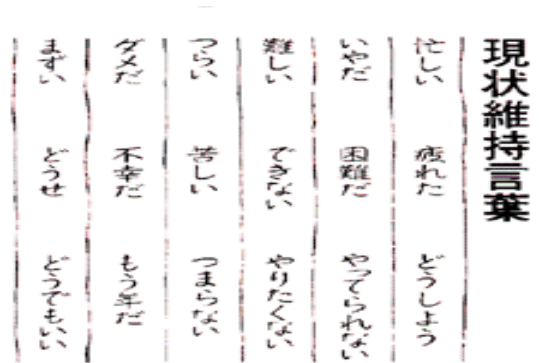 現状維持言葉
忙しい 疲れた どうしよう
いやだ 困難だ やってられない
難しい できない やりたくない
つらい 苦しい つまらない
ダメだ 不幸だ もう年だ
まずい どうせ どうでもいい